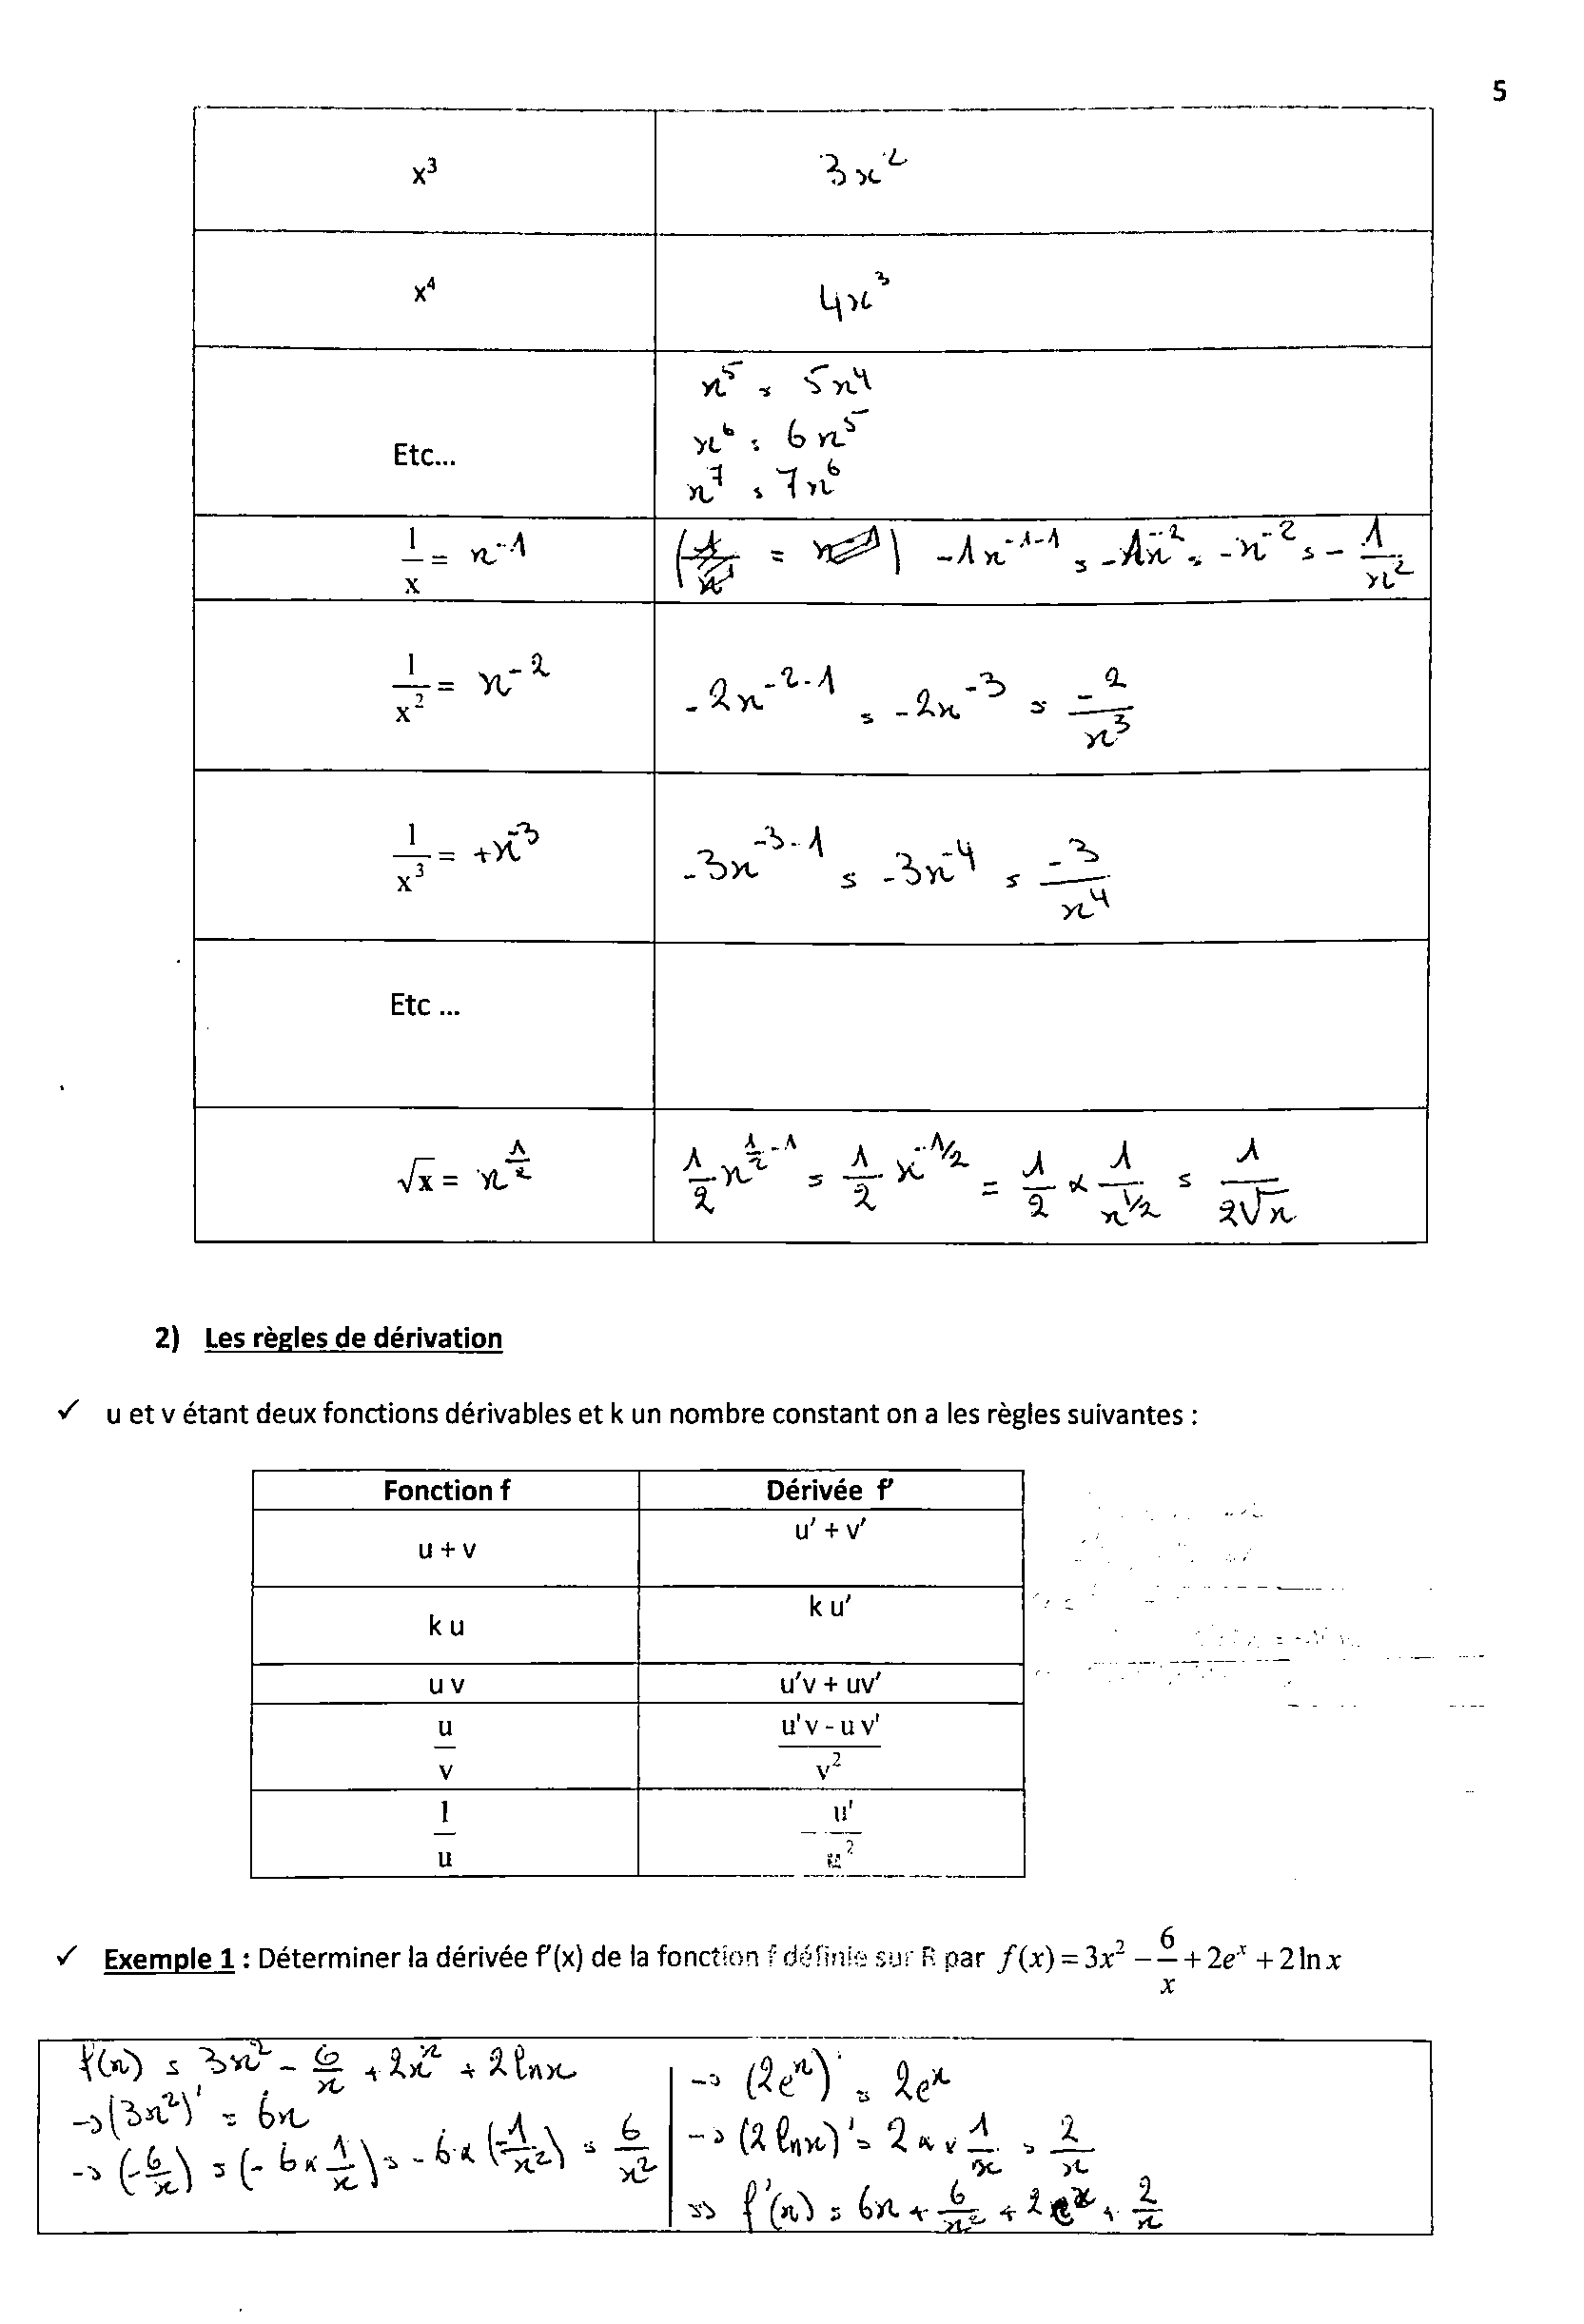 5
x³ 3x²
x⁴ 4x³
x⁵ = 5x⁴
x⁶ = 6x⁵
Etc...
x⁷ = 7x⁶
1/x = x⁻¹ ( = ) -1x⁻¹⁻¹ = -1x⁻² = -x⁻² = - 1/x²
1/x² = x⁻² -2x⁻²⁻¹ = -2x⁻³ = -2/x³
1/x³ = +x⁻³ -3x⁻³⁻¹ = -3x⁻⁴ = -3/x⁴
Etc ...
√x = x^(1/2) 1/2 x^(1/2 - 1) = 1/2 x^(-1/2) = 1/2 × 1/x^(1/2) = 1/(2√x)
2) Les règles de dérivation
✓ u et v étant deux fonctions dérivables et k un nombre constant on a les règles suivantes :
Fonction f Dérivée f'
u + v u' + v'
k u k u'
u v u'v + uv'
u/v (u'v - u v')/v²
1/u - u'/u²
✓ Exemple 1 : Déterminer la dérivée f'(x) de la fonction f définie sur R par f(x) = 3x² - 6/x + 2eˣ + 2 ln x
f(x) = 3x² - 6/x + 2xˣ + 2 ln x
→ (3x²)' = 6x
→ (-6/x) = (-6 × 1/x) = -6 × (-1/x²) = 6/x²
→ (2eˣ)' = 2eˣ
→ (2 ln x)' = 2 × 1/x = 2/x
⇒ f'(x) = 6x + 6/x² + 2eˣ + 2/x